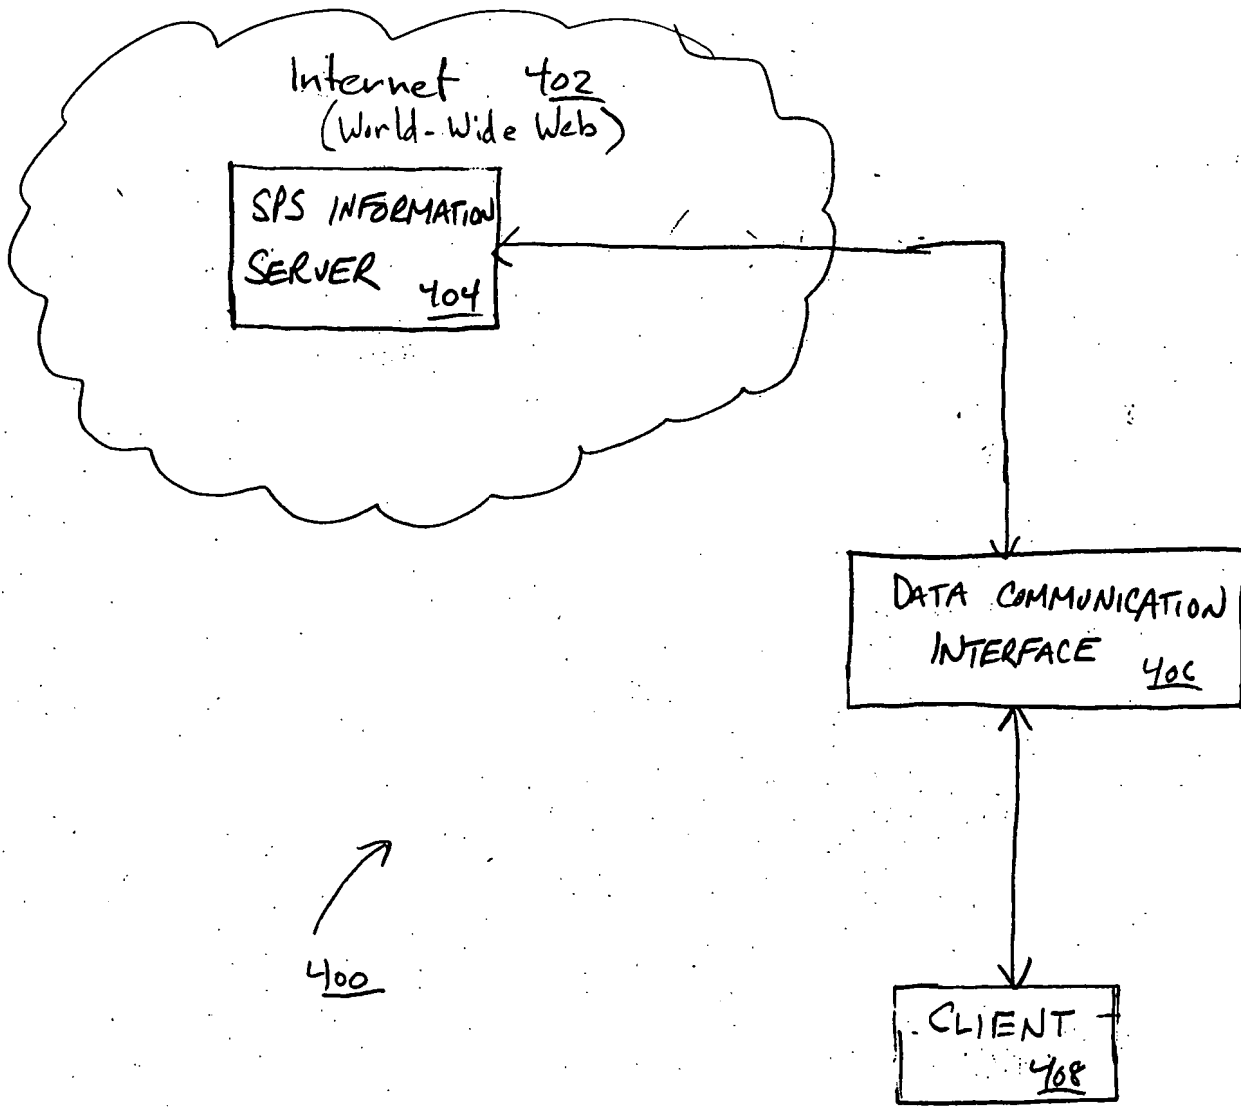 Internet 402
(World-Wide Web)
SPS INFORMATION
SERVER 404
DATA COMMUNICATION
INTERFACE 406
400
CLIENT
408